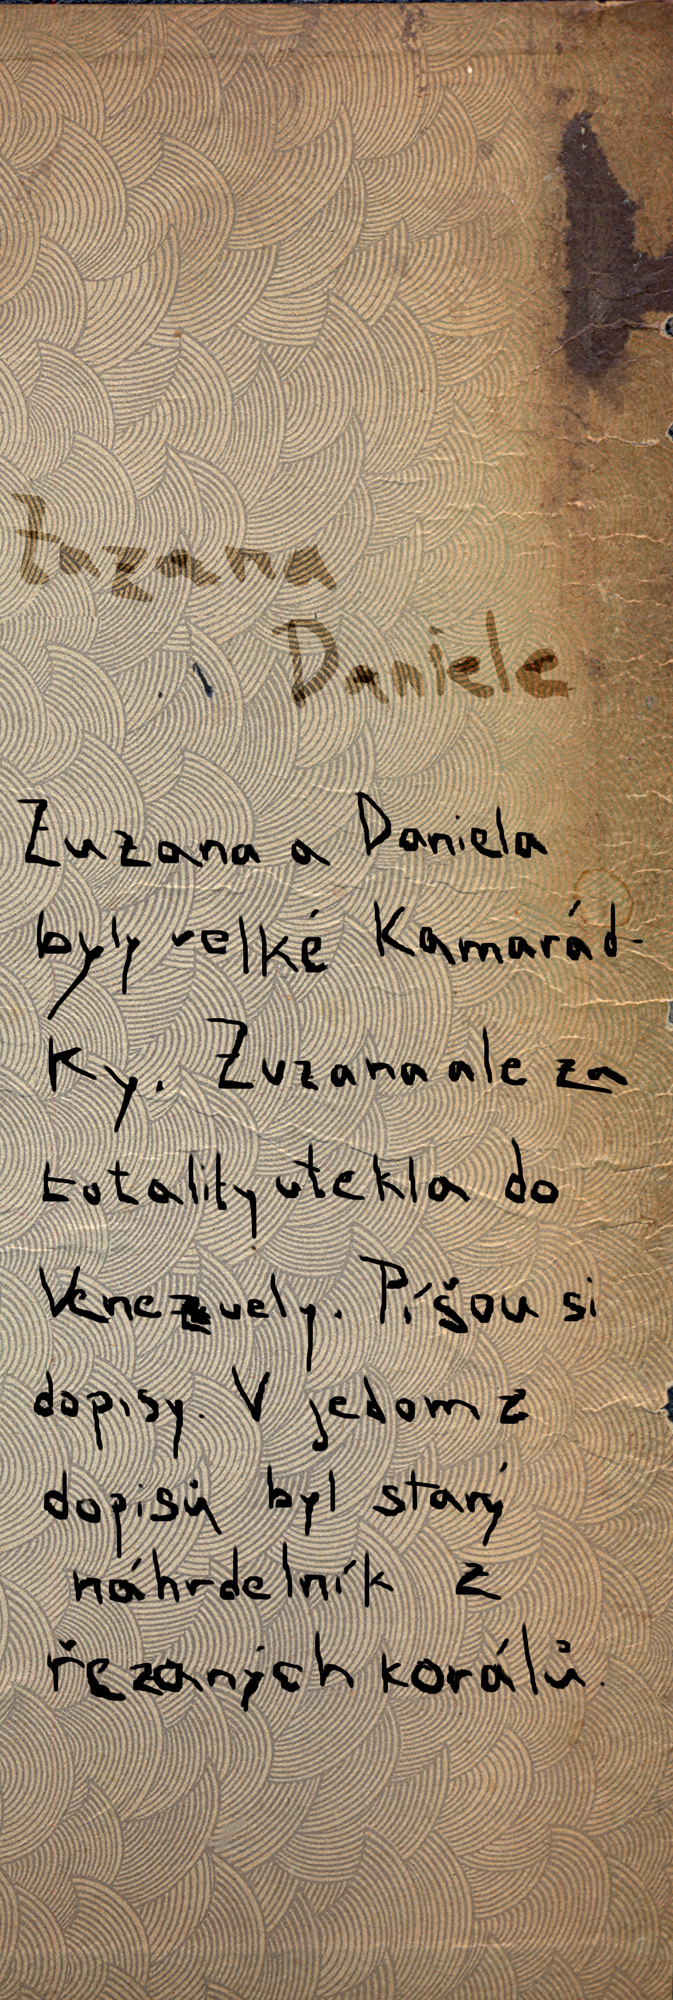 Zuzana
Daniele
Zuzana a Daniela
byly velké Kamarád-
Ky. Zuzana ale za
totality utekla do
Venezuely. Píšou si
dopisy. V jedom z
dopisů byl starý
náhrdelník z
řezaných korálů.